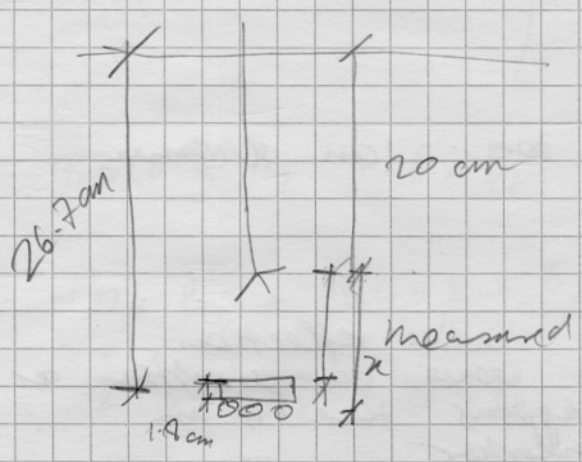 26.7 cm
20 cm
measured
x
1.8 cm